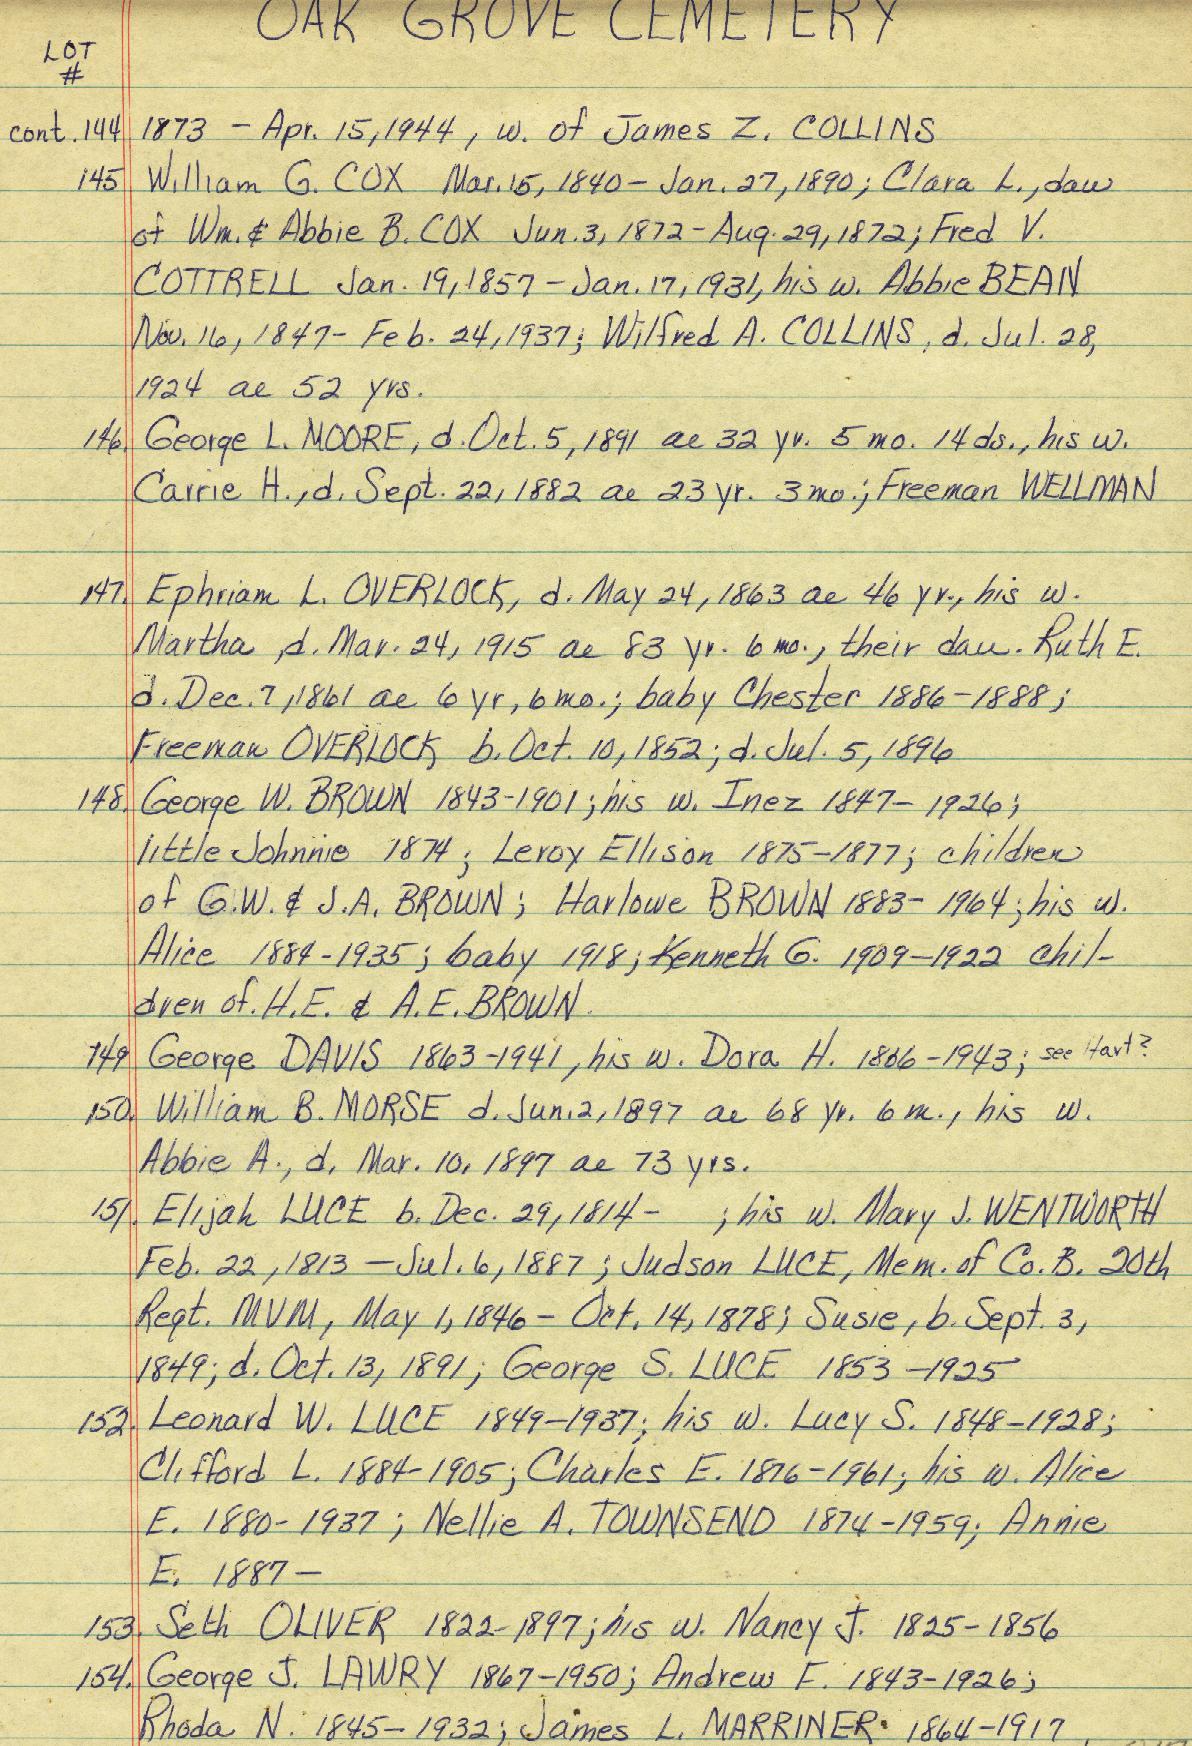 OAK GROVE CEMETERY
LOT
#
cont. 144 1873 - Apr. 15, 1944, w. of James Z. COLLINS
145 William G. COX Mar. 15, 1840 - Jan. 27, 1890; Clara L., dau
of Wm. & Abbie B. COX Jun. 3, 1872 - Aug. 29, 1872; Fred V.
COTTRELL Jan. 19, 1857 - Jan. 17, 1931, his w. Abbie BEAN
Nov. 16, 1847 - Feb. 24, 1937; Wilfred A. COLLINS, d. Jul. 28,
1924 ae 52 yrs.
146. George L. MOORE, d. Oct. 5, 1891 ae 32 yr. 5 mo. 14 ds., his w.
Carrie H., d. Sept. 22, 1882 ae 23 yr. 3 mo.; Freeman WELLMAN
147. Ephriam L. OVERLOCK, d. May 24, 1863 ae 46 yr., his w.
Martha, d. Mar. 24, 1915 ae 83 yr. 6 mo., their dau. Ruth E.
d. Dec. 7, 1861 ae 6 yr, 6 mo.; baby Chester 1886-1888;
Freeman OVERLOCK b. Oct. 10, 1852; d. Jul. 5, 1896
148. George W. BROWN 1843-1901; his w. Inez 1847-1926;
little Johnnie 1874; Leroy Ellison 1875-1877; children
of G.W. & J.A. BROWN; Harlowe BROWN 1883-1964; his w.
Alice 1884-1935; baby 1918; Kenneth G. 1909-1922 chil-
dren of. H.E. & A.E. BROWN.
149 George DAVIS 1863-1941, his w. Dora H. 1866-1943; see Hart?
150. William B. MORSE d. Jun. 2, 1897 ae 68 yr. 6 m., his w.
Abbie A., d. Mar. 10, 1897 ae 73 yrs.
151. Elijah LUCE b. Dec. 29, 1814 - ; his w. Mary J. WENTWORTH
Feb. 22, 1813 - Jul. 6, 1887; Judson LUCE, Mem. of Co. B. 20th
Regt. MVM, May 1, 1846 - Oct. 14, 1878; Susie, b. Sept. 3,
1849; d. Oct. 13, 1891; George S. LUCE 1853-1925
152. Leonard W. LUCE 1849-1937; his w. Lucy S. 1848-1928;
Clifford L. 1884-1905; Charles E. 1876-1961; his w. Alice
E. 1880-1937; Nellie A. TOWNSEND 1874-1959; Annie
E. 1887-
153. Seth OLIVER 1822-1897; his w. Nancy J. 1825-1856
154. George J. LAWRY 1867-1950; Andrew F. 1843-1926;
Rhoda N. 1845-1932; James L. MARRINER 1864-1917